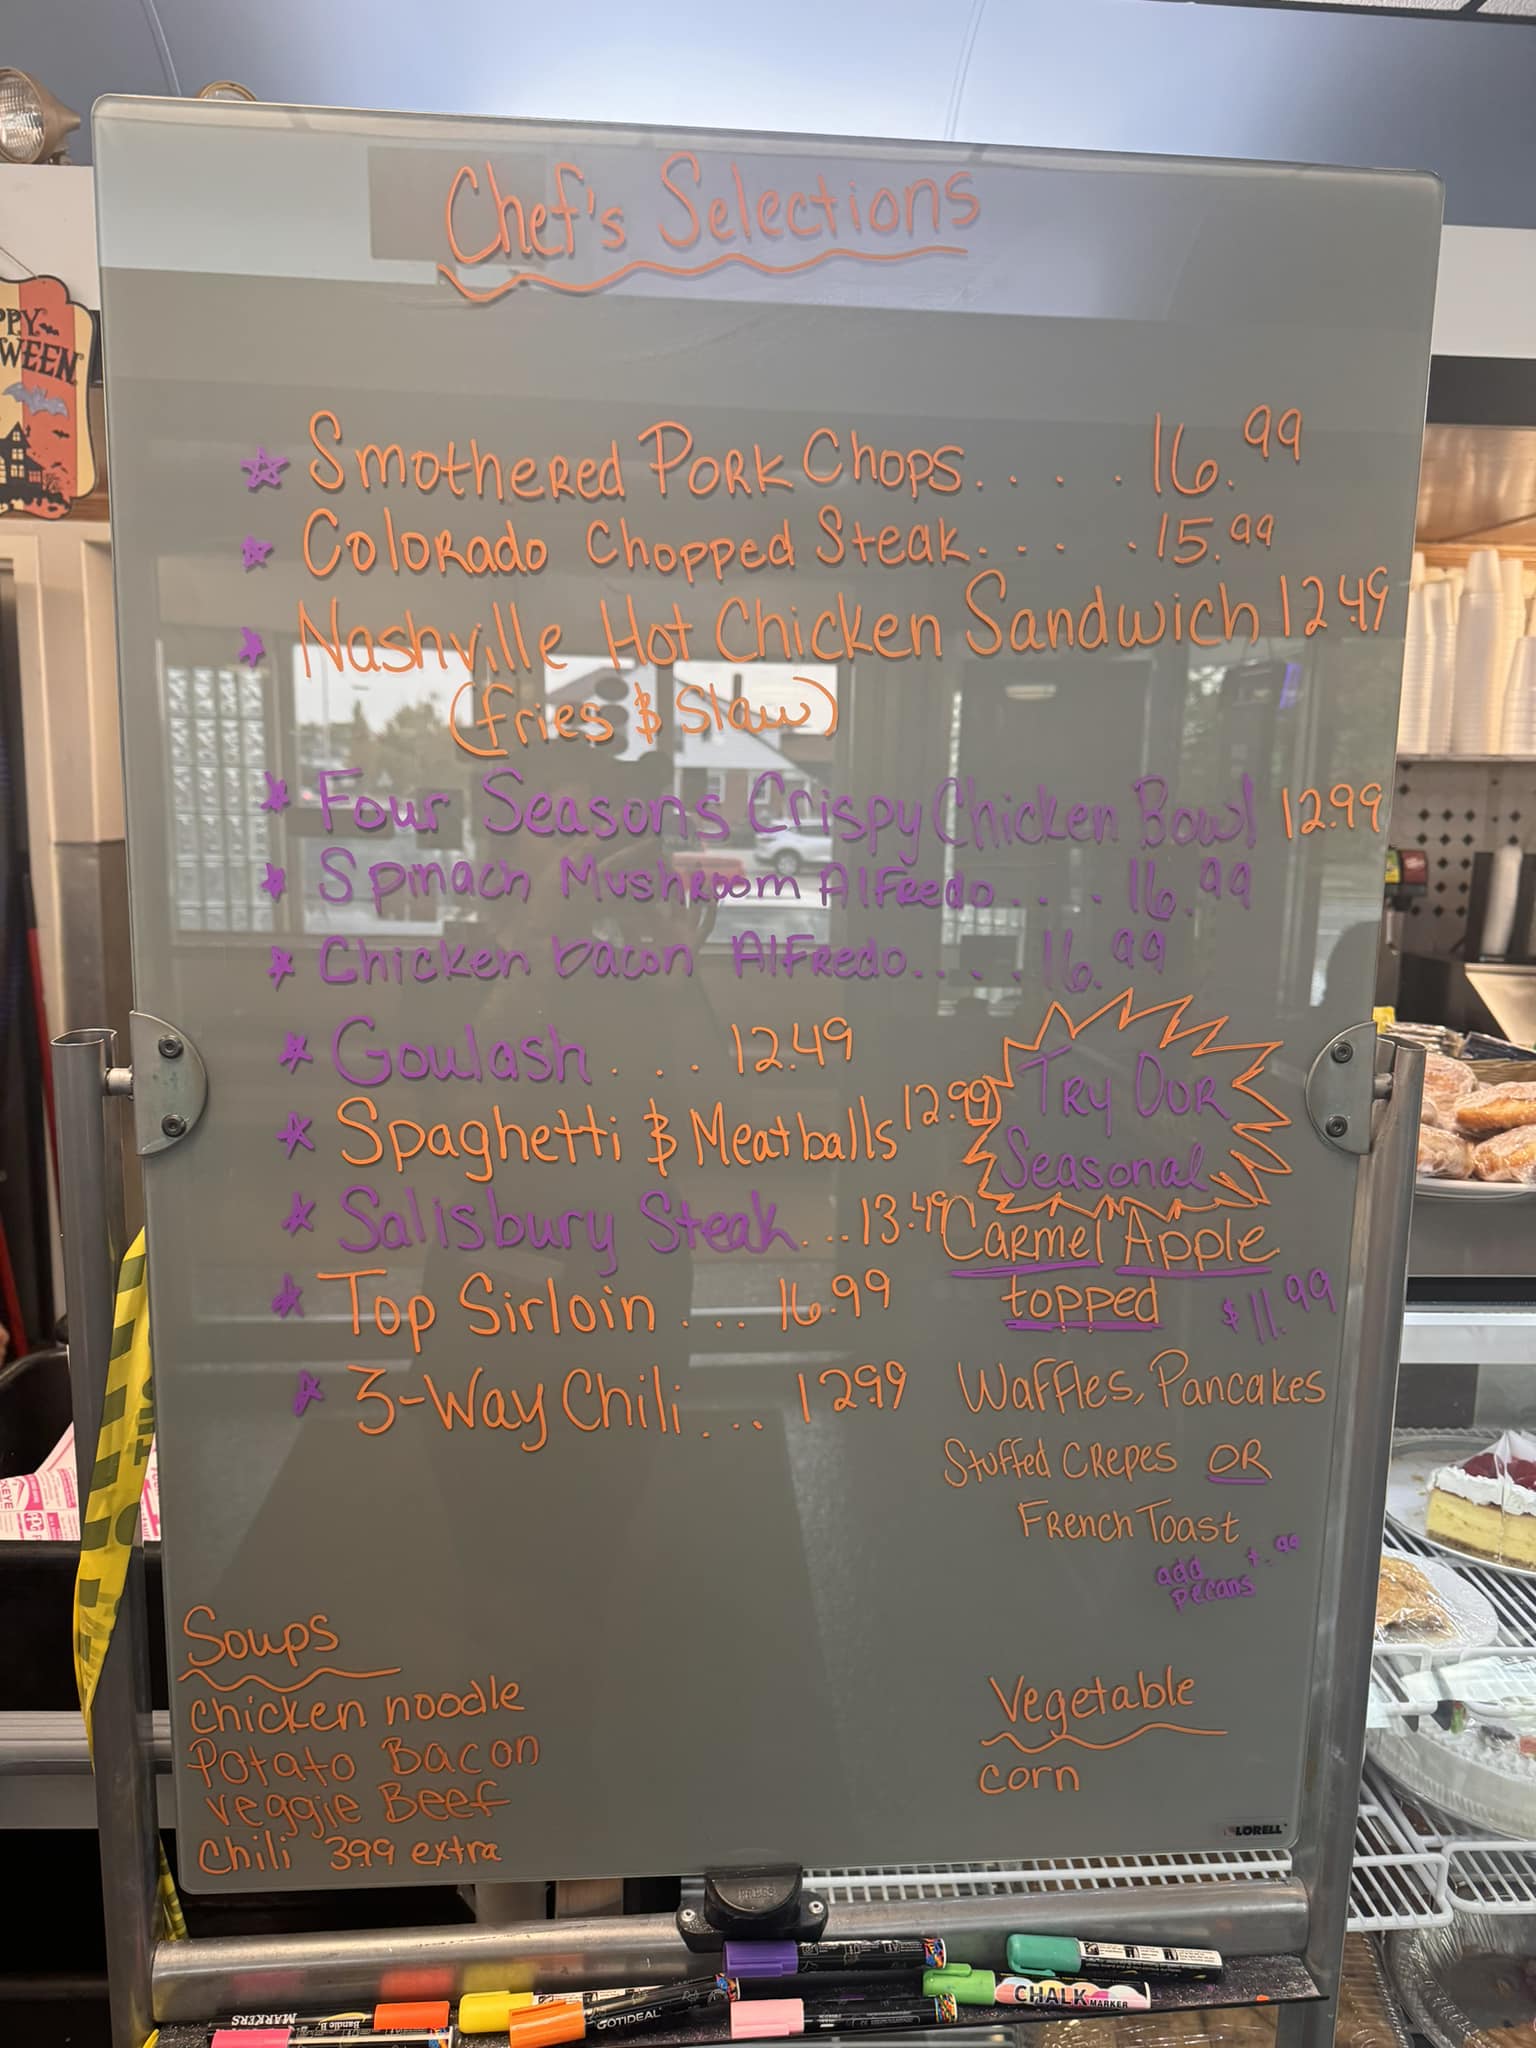 Chef's Selections
PPY
WEEN
Smothered Pork Chops.... 16.99
Colorado Chopped Steak.... 15.99
Nashville Hot Chicken Sandwich 12.49
(fries & Slaw)
Four Seasons Crispy Chicken Bowl 12.99
Spinach Mushroom Alfredo... 16.99
Chicken bacon Alfredo.... 16.99
Goulash... 12.49
Spaghetti & Meatballs 12.99
Salisbury Steak... 13.49
Top Sirloin... 16.99
3-Way Chili... 12.99
Try Our
Seasonal
Carmel Apple
topped $11.99
Waffles, Pancakes
Stuffed Crepes OR
French Toast
add pecans +.99
Soups
chicken noodle
Potato Bacon
veggie Beef
Chili 3.99 extra
Vegetable
corn
LORELL
PRESS
MARKERS
GOTIDEAL
CHALK MARKER